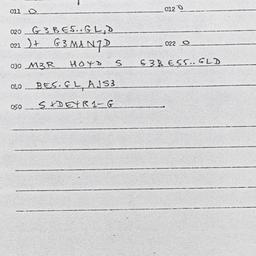 011 0 012 0
020 G3BES..GL,D
021 )+ G3MAN7D 022 0
030 M3R HOYD S G3BESS..GLD
040 BES.GL,A1S3
050 S+DEYR1-G